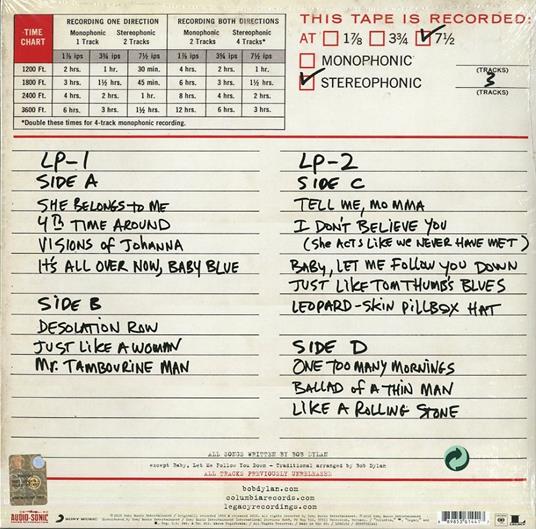 TIME CHART
RECORDING ONE DIRECTION
RECORDING BOTH DIRECTIONS
Monophonic 1 Track
Stereophonic 2 Tracks
Monophonic 2 Tracks
Stereophonic 4 Tracks*
1⅞ ips 3¾ ips 7½ ips 1⅞ ips 3¾ ips 7½ ips
1200 Ft. 2 hrs. 1 hr. 30 min. 4 hrs. 2 hrs. 1 hr.
1800 Ft. 3 hrs. 1½ hrs. 45 min. 6 hrs. 3 hrs. 1½ hrs.
2400 Ft. 4 hrs. 2 hrs. 1 hr. 8 hrs. 4 hrs. 2 hrs.
3600 Ft. 6 hrs. 3 hrs. 1½ hrs. 12 hrs. 6 hrs. 3 hrs.
*Double these times for 4-track monophonic recording.
THIS TAPE IS RECORDED:
AT 1⅞ 3¾ 7½
MONOPHONIC
(TRACKS)
STEREOPHONIC 3
(TRACKS)
LP-1
SIDE A
SHE BELONGS TO ME
4th TIME AROUND
VISIONS of JOHANNA
IT'S ALL OVER NOW, BABY BLUE
SIDE B
DESOLATION ROW
JUST LIKE A WOMAN
Mr. TAMBOURINE MAN
LP-2
SIDE C
TELL ME, MOMMA
I DON'T BELIEVE YOU
(SHE ACTS LIKE WE NEVER HAVE MET)
BABY, LET ME FOLLOW YOU DOWN
JUST LIKE TOM THUMB'S BLUES
LEOPARD-SKIN PILLBOX HAT
SIDE D
ONE TOO MANY MORNINGS
BALLAD of A THIN MAN
LIKE A ROLLING STONE
ALL SONGS WRITTEN BY BOB DYLAN
except Baby, Let Me Follow You Down - Traditional arranged by Bob Dylan
ALL TRACKS PREVIOUSLY UNRELEASED
bobdylan.com
columbiarecords.com
legacyrecordings.com
AUDIO-SONIC
SONY MUSIC